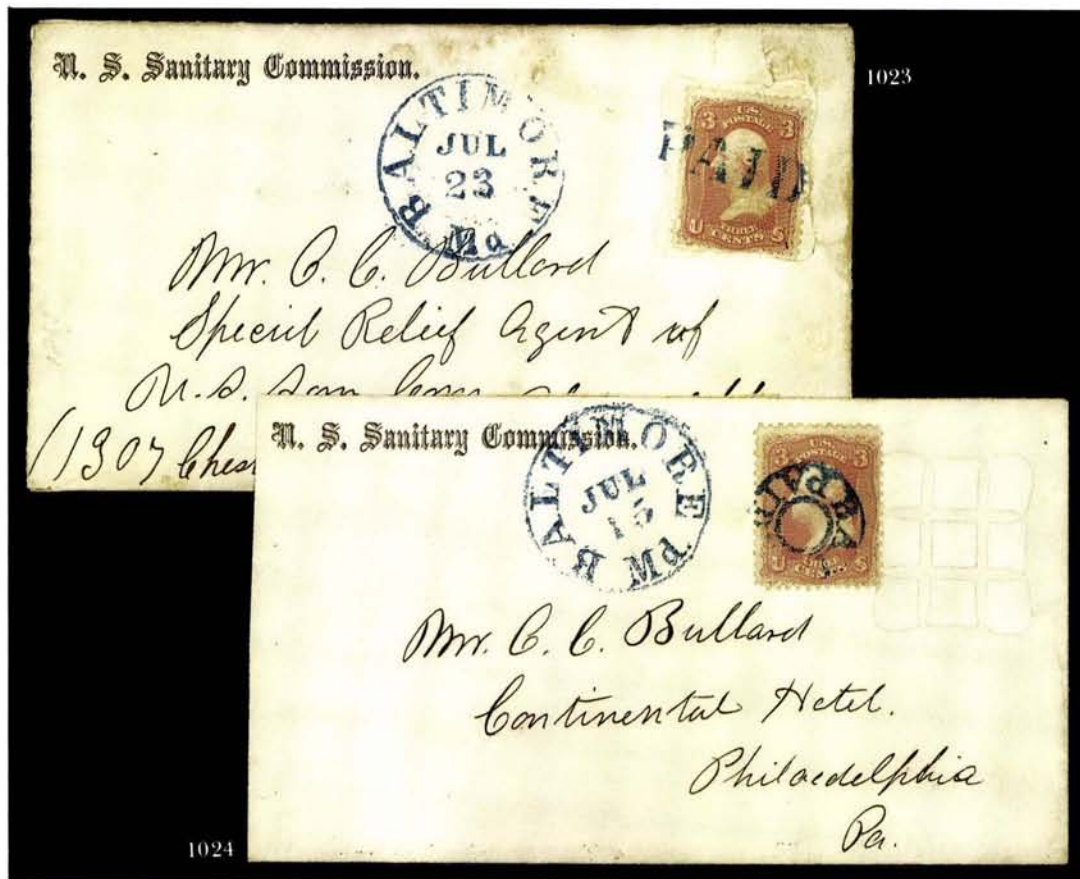 U. S. Sanitary Commission.
1023
BALTIMORE Md
JUL
23
U.S. POSTAGE
3 3
PAID
U THREE CENTS S
Mr. C. C. Bullard
Special Relief Agent of
U.S. San Com
(1307 Ches
U. S. Sanitary Commission.
BALTIMORE Md
JUL
15
U.S. POSTAGE
3 3
PAID
U THREE CENTS S
Mr. C. C. Bullard
Continental Hotel.
Philadelphia
Pa.
1024